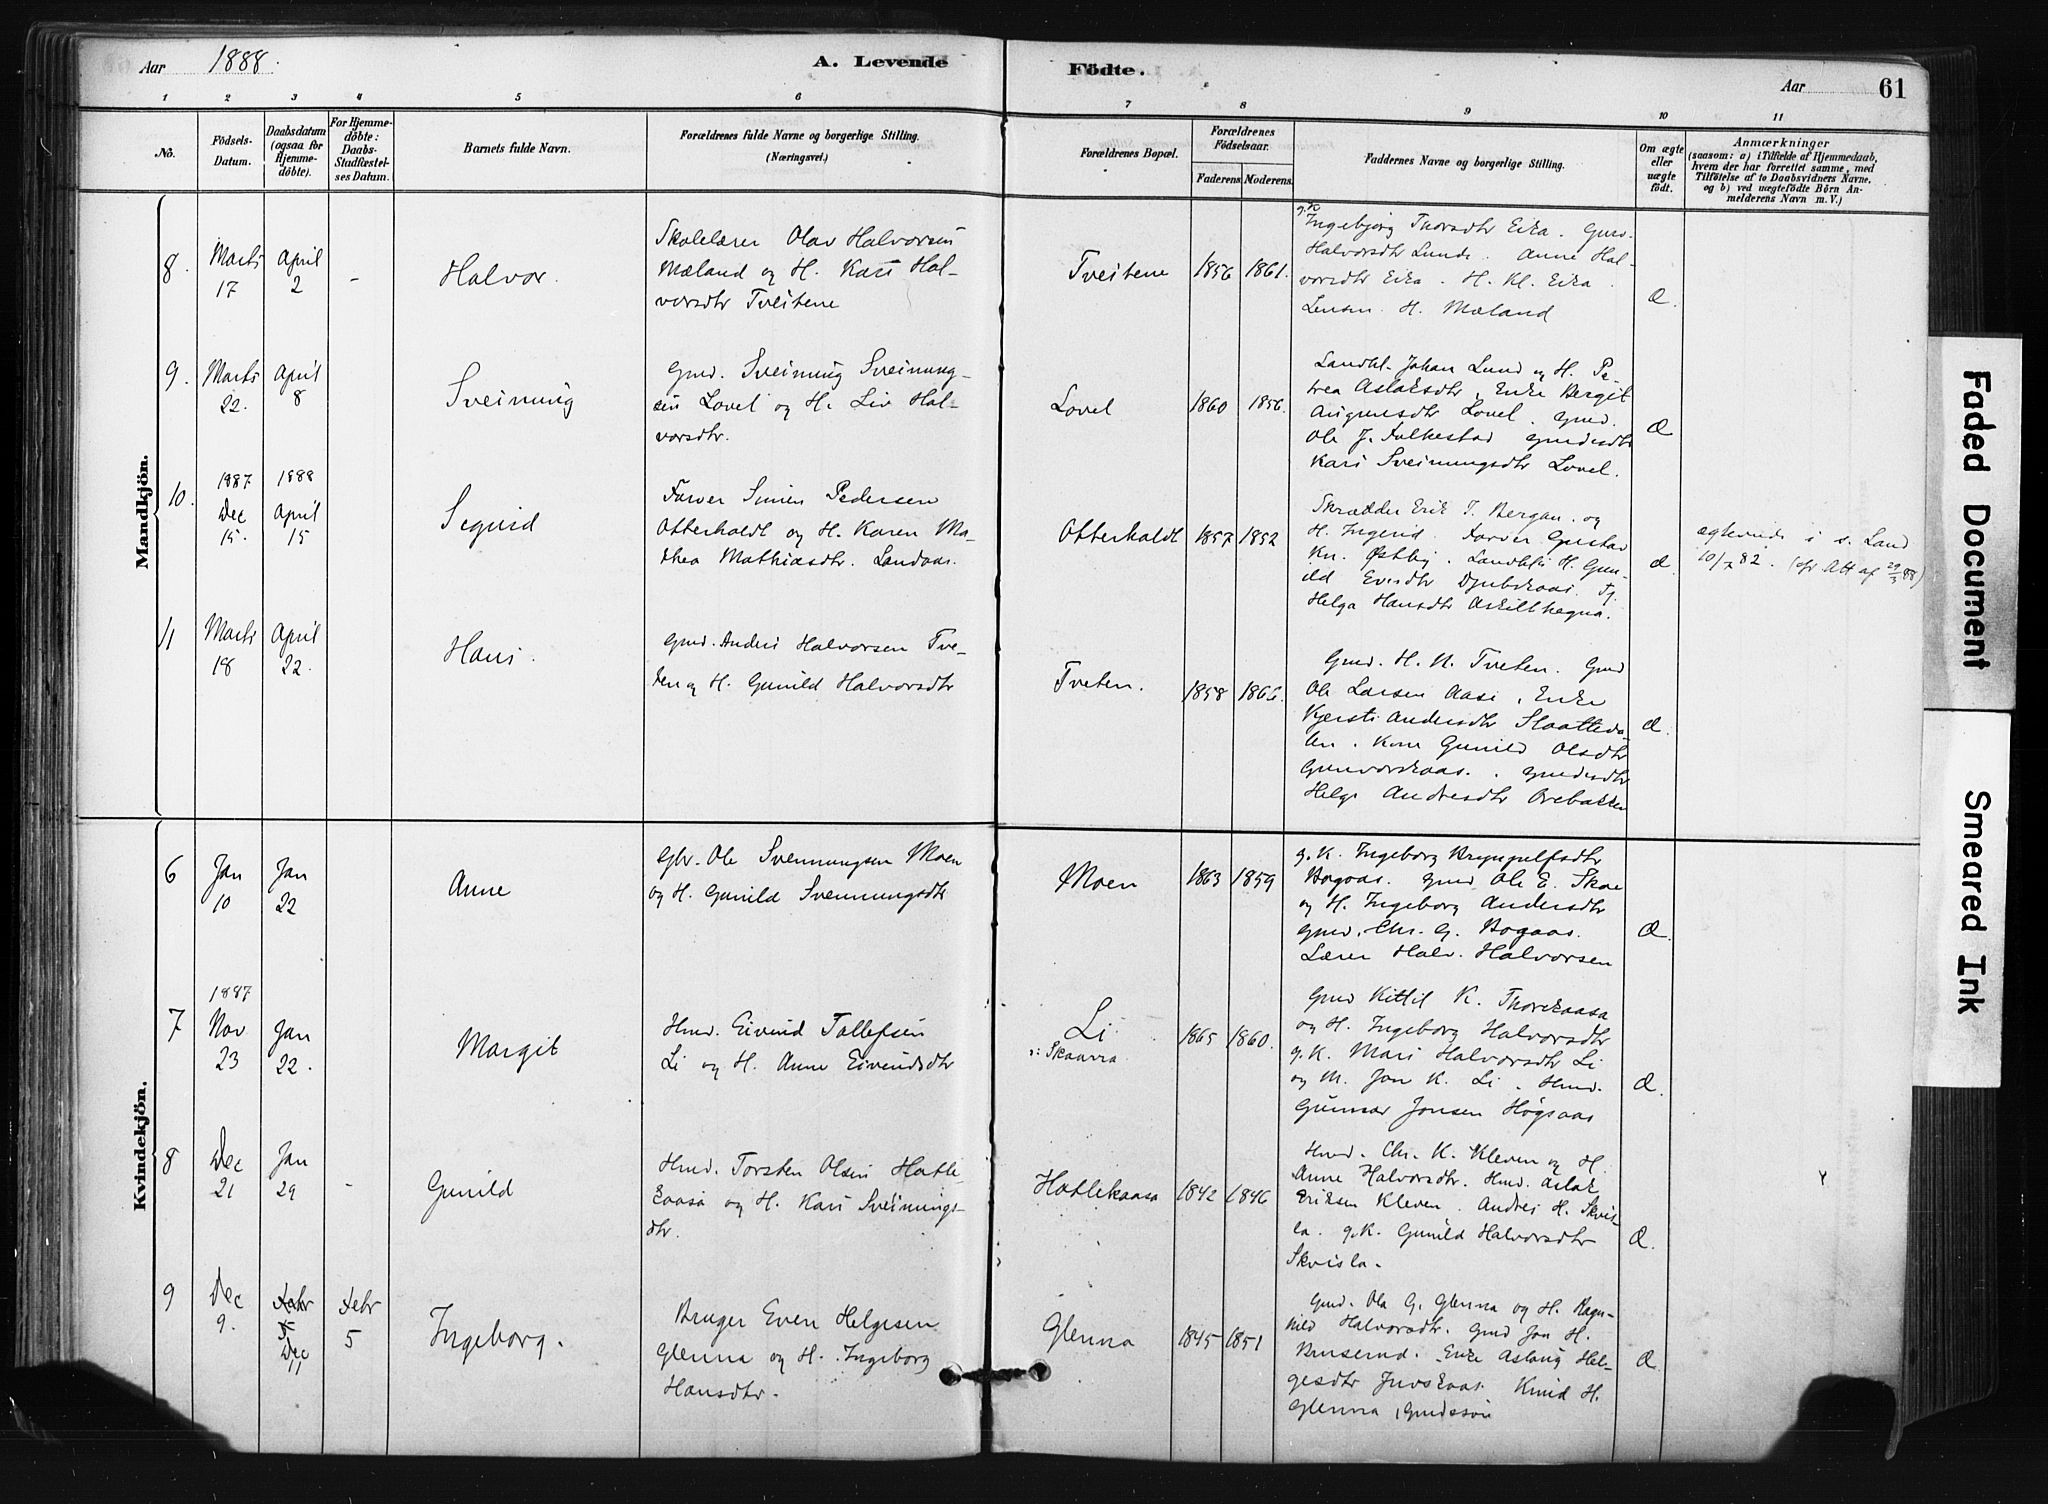 Aar 1888. A. Levende Födte. Aar 61
1 2 3 4 5 6 7 8 9 10 11
No.
Födsels-Datum.
Daabsdatum (ogsaa for Hjemme-döbte).
For Hjemme-döbte: Daabs-Stadfæstel-ses Datum.
Barnets fulde Navn.
Forældrenes fulde Navne og borgerlige Stilling.
(Næringsvei.)
Forældrenes Bopæl.
Forældrenes Födselsaar.
Faderens. Moderens.
Faddernes Navne og borgerlige Stilling.
Om ægte eller uægte födt.
Anmærkninger
(saasom: a) i Tilfælde af Hjemmedaab,
hvem der har forrettet samme, med
Tilföielse af to Daabsvidners Navne,
og b) ved uægtefödte Börn An-
melderens Navn m. V.)
Mandkjön.
8. Marts 17 April 2 - Halvor.
Skolelærer Olav Halvorsen
Mæland og H. Kari Hal-
vorsdtr Tveitene
Tveitene 1856 1861.
g. K.
Ingebjörg Thorsdtr Eika. Guro
Halvorsdtr Lunde. Anne Hal-
vorsdtr Eika. H. Kl. Eika.
Lensm. H. Mæland
Æ.
9. Marts 22. April 8 Sveinung
Gmd. Sveinung Sveinung-
sen Lovel og H. Liv Hal-
vorsdtr.
Lovel 1860 1856.
Landhl. Johan Lund og H. Pe-
trea Aslaksdtr, Enke Bergit
Augunsdtr Lovel. gmd.
Ole J. Folkestad gmdsdtr
Kari Sveinungsdtr Lovel.
Æ
10. 1887 Dec 15. 1888 April 15 Sigurd
Farver Simen Pedersen
Otterholdt og H. Karen Ma-
thea Mathiasdtr. Landaas.
Otterholdt 1857 1852
Skrædder Erik T. Bergan. og
H. Ingerid. Farver Gustav
Kn. Østby. Landhl. H. Gun-
ild Evisdtr Djubskaas. Tj.
Helga Hansdtr Askilthegna.
Æ.
ægteviede i s. Land
10/7 82. (cfr Att af 29/3 88)
11 Marts 18 April 22. Hans.
Gmd. Anders Halvorsen Tve-
ten og H. Gunild Halvorsdtr
Tveten. 1858 1866.
Gmd. H. N. Tveten. Gmd
Ole Larsen Aase, Enke
Kjersti Andersdtr Slaatteda-
len. Kone Gunild Olsdtr
Gunvorskaas. gmdsdtr
Helge Andersdtr Orebakken
Æ.
Kvindekjön.
6 Jan 10 Jan 22 Anne
Gbr. Ole Svennungsen Moen
og H. Gunild Svennungsdtr
Moen 1863 1859
g. K. Ingeborg Brynjulfsdtr
Bogaas. gmd Ole E. Skoe
og H. Ingeborg Andersdtr
gmd. Chr. G. Bogaas.
Lærer Halv. Halvorsen
Æ.
7 1887 Nov 23 Jan 22. Margit
Hmd. Eivind Tollefsen
Li og H. Anne Eivindsdtr
Li
Skaarra. 1865 1860.
Gmd Kittil K. Thorskaasa
og H. Ingeborg Halvorsdtr
g. K. Mari Halvorsdtr Li
og M. Jon K. Li. Hmd.
Gunnar Jonsen Högsaas
Æ.
8 Dec 21 Jan 29 - Gunild
Hmd. Torsten Olsen Hotle
kaasa og H. Kari Sveinungs-
dtr.
Hotlekaasa 1842 1846
Hmd. Chr. K. Kleven og H.
Anne Halvorsdtr. Hmd. Aslak
Eriksen Kleven. Andres H. Skvis-
la. g. K. Gunild Halvorsdtr
Skvisla.
Æ.
9 Dec 9. Febr 5 Dec 11 Febr 5 Ingeborg.
Bruger Even Helgesen
Glenna og H. Ingeborg
Hansdtr.
Glenna 1845 1851
Gmd. Ola G. Glenna og H. Ragn-
hild Halvorsdtr. Gmd Jon H.
Bruserud. Enke Aslaug Hel-
gesdtr Juvskaas. Knud H.
Glenna, gmdssön
Æ.
Faded Document
Smeared Ink